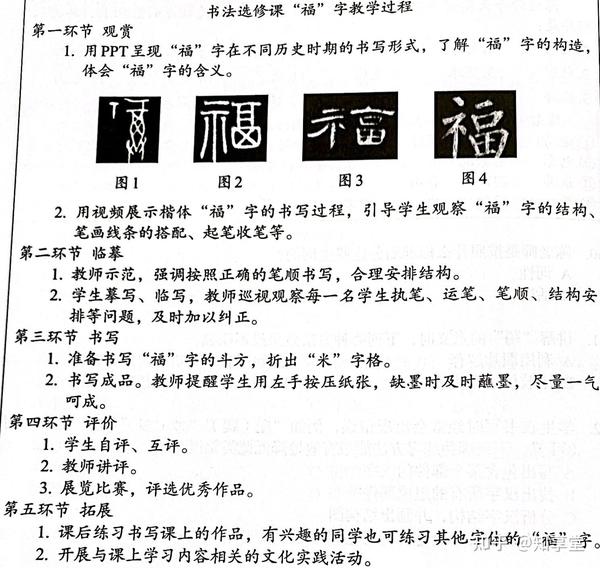 书法选修课“福”字教学过程
第一环节 观赏
1. 用PPT呈现“福”字在不同历史时期的书写形式，了解“福”字的构造，
体会“福”字的含义。
福 福 福 福
图1 图2 图3 图4
2. 用视频展示楷体“福”字的书写过程，引导学生观察“福”字的结构、
笔画线条的搭配、起笔收笔等。
第二环节 临摹
1. 教师示范，强调按照正确的笔顺书写，合理安排结构。
2. 学生摹写、临写，教师巡视观察每一名学生执笔、运笔、笔顺、结构安
排等问题，及时加以纠正。
第三环节 书写
1. 准备书写“福”字的斗方，折出“米”字格。
2. 书写成品。教师提醒学生用左手按压纸张，缺墨时及时蘸墨，尽量一气
呵成。
第四环节 评价
1. 学生自评、互评。
2. 教师讲评。
3. 展览比赛，评选优秀作品。
第五环节 拓展
1. 课后练习书写课上的作品，有兴趣的同学也可练习其他字体的“福”字。
2. 开展与课上学习内容相关的文化实践活动。
知乎 @知享堂